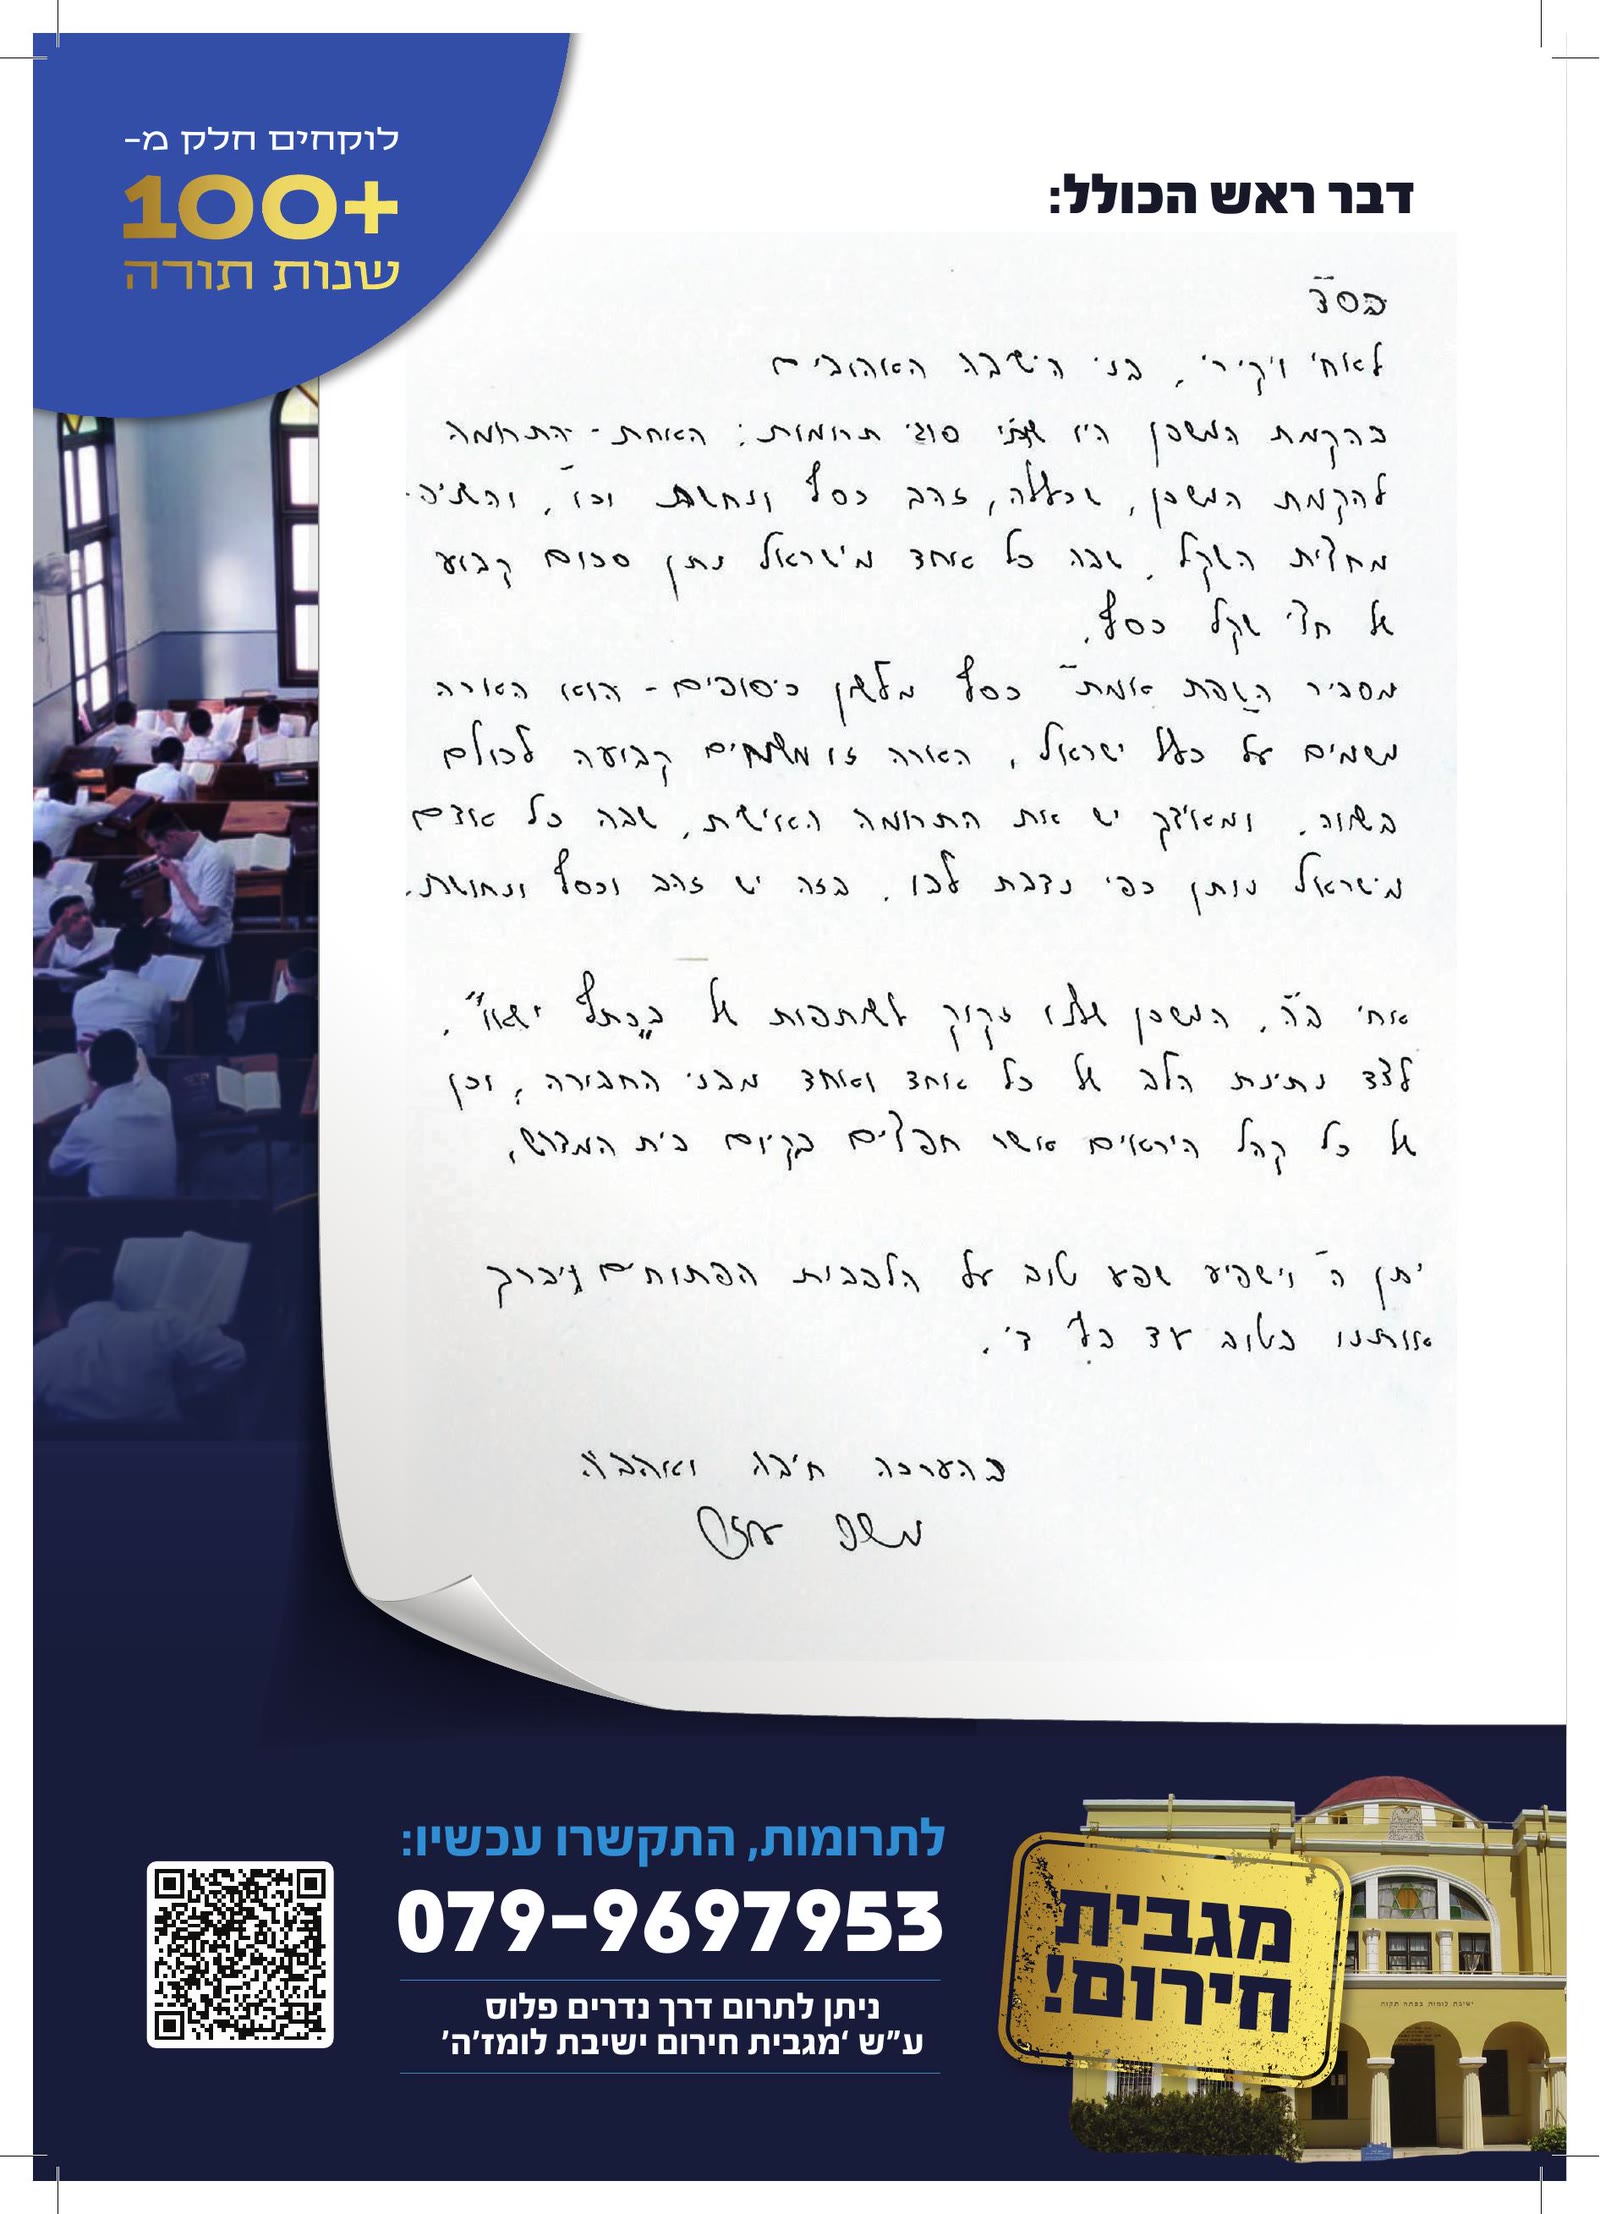 לוקחים חלק מ-
100+
שנות תורה
דבר ראש הכולל:
בס"ד
לאחי ויקירי, בני הישיבה האהובים
בהקמת המשכן היו שתי סוגי תרומות: האחת - התרומה
להקמת המשכן, שכללה, זהב כסף ונחשת וכו', והשניה-
מחצית השקל, שבה כל אחד מישראל נתן סכום קבוע
של חצי שקל כסף.
מסביר ה"שפת אמת" כסף מלשון כיסופים - הוא הארה
משמים על כלל ישראל, הארה זו קבועה לכולם
בשווה, ומאידך יש את התרומה האישית, שבה כל אדם
מישראל נותן כפי נדבת לבו, בזה יש זהב וכסף ונחושת.
אחי בה, המשכן שלנו זקוק לשתפות של "בכתף ישאו",
לצד נתינת הלב של כל אחד ואחד מבני החבורה, וכן
של כל קהל היראים אשר חפצים בקיום בית המדרש,
יתן ה' וישפיע שפע טוב על הלבבות הפתוחים ויברך
אותנו בטוב עד בלי די.
בהערכה חיבה ואהבה
לתרומות, התקשרו עכשיו:
079-9697953
ניתן לתרום דרך נדרים פלוס
ע"ש 'מגבית חירום ישיבת לומז'ה'
מגבית
חירום!
ישיבת לומזה בפתח תקוה